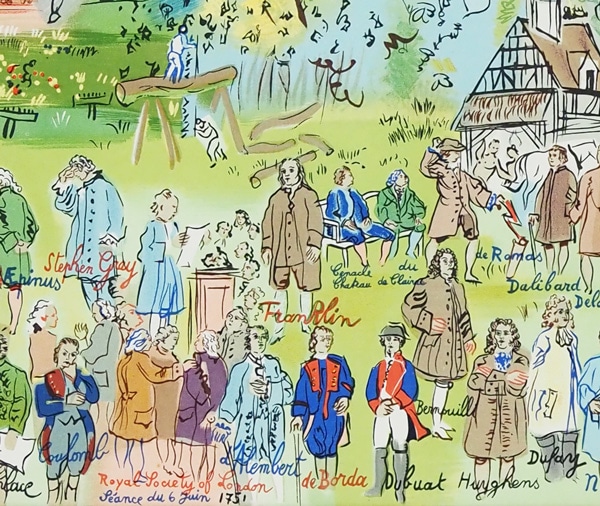 Æpinus
Stephen Gray
Franklin
Cenacle du
Chateau de Clairac
de Romas
Dalibard
Bernouilli
Coulomb
d'Alembert
de Borda
Dubuat
Huyghens
Dufay
Royal Society of London
Séance du 6 Juin 1751